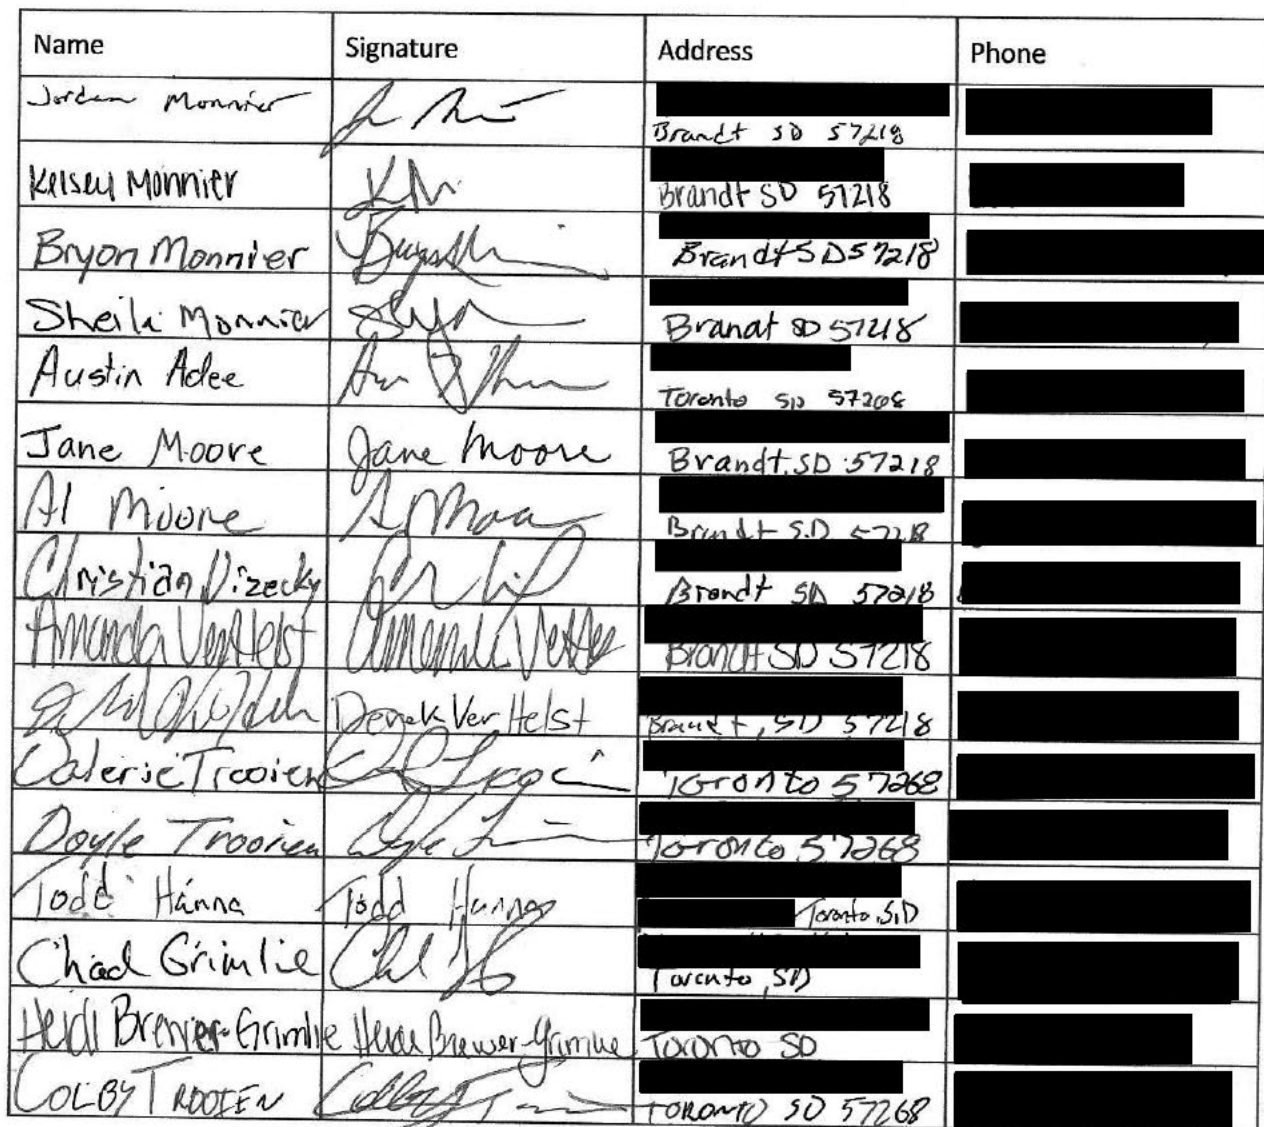 Name Signature Address Phone
Jordan Monnier
Brandt SD 57218
Kelsey Monnier KM Brandt SD 57218
Bryon Monnier Brandt SD 57218
Sheila Monnier Brandt SD 57218
Austin Adee
Toronto SD 57268
Jane Moore Jane Moore Brandt, SD 57218
Al Moore A Moore Brandt S.D 57218
Christian Dizecky Brandt SD 57218
Amanda VerHelst Amanda Brandt SD 57218
Derek Ver Helst Brandt, SD 57218
Valerie Trooien Toronto 57268
Doyle Trooien Doyle Toronto 57268
Todd Hanna Todd Hanna Toronto, S.D
Chad Grimlie Toronto, SD
Heidi Brewer-Grimlie Heidi Brewer-Grimlie Toronto SD
COLBY TROOIEN Colby TORONTO SD 57268